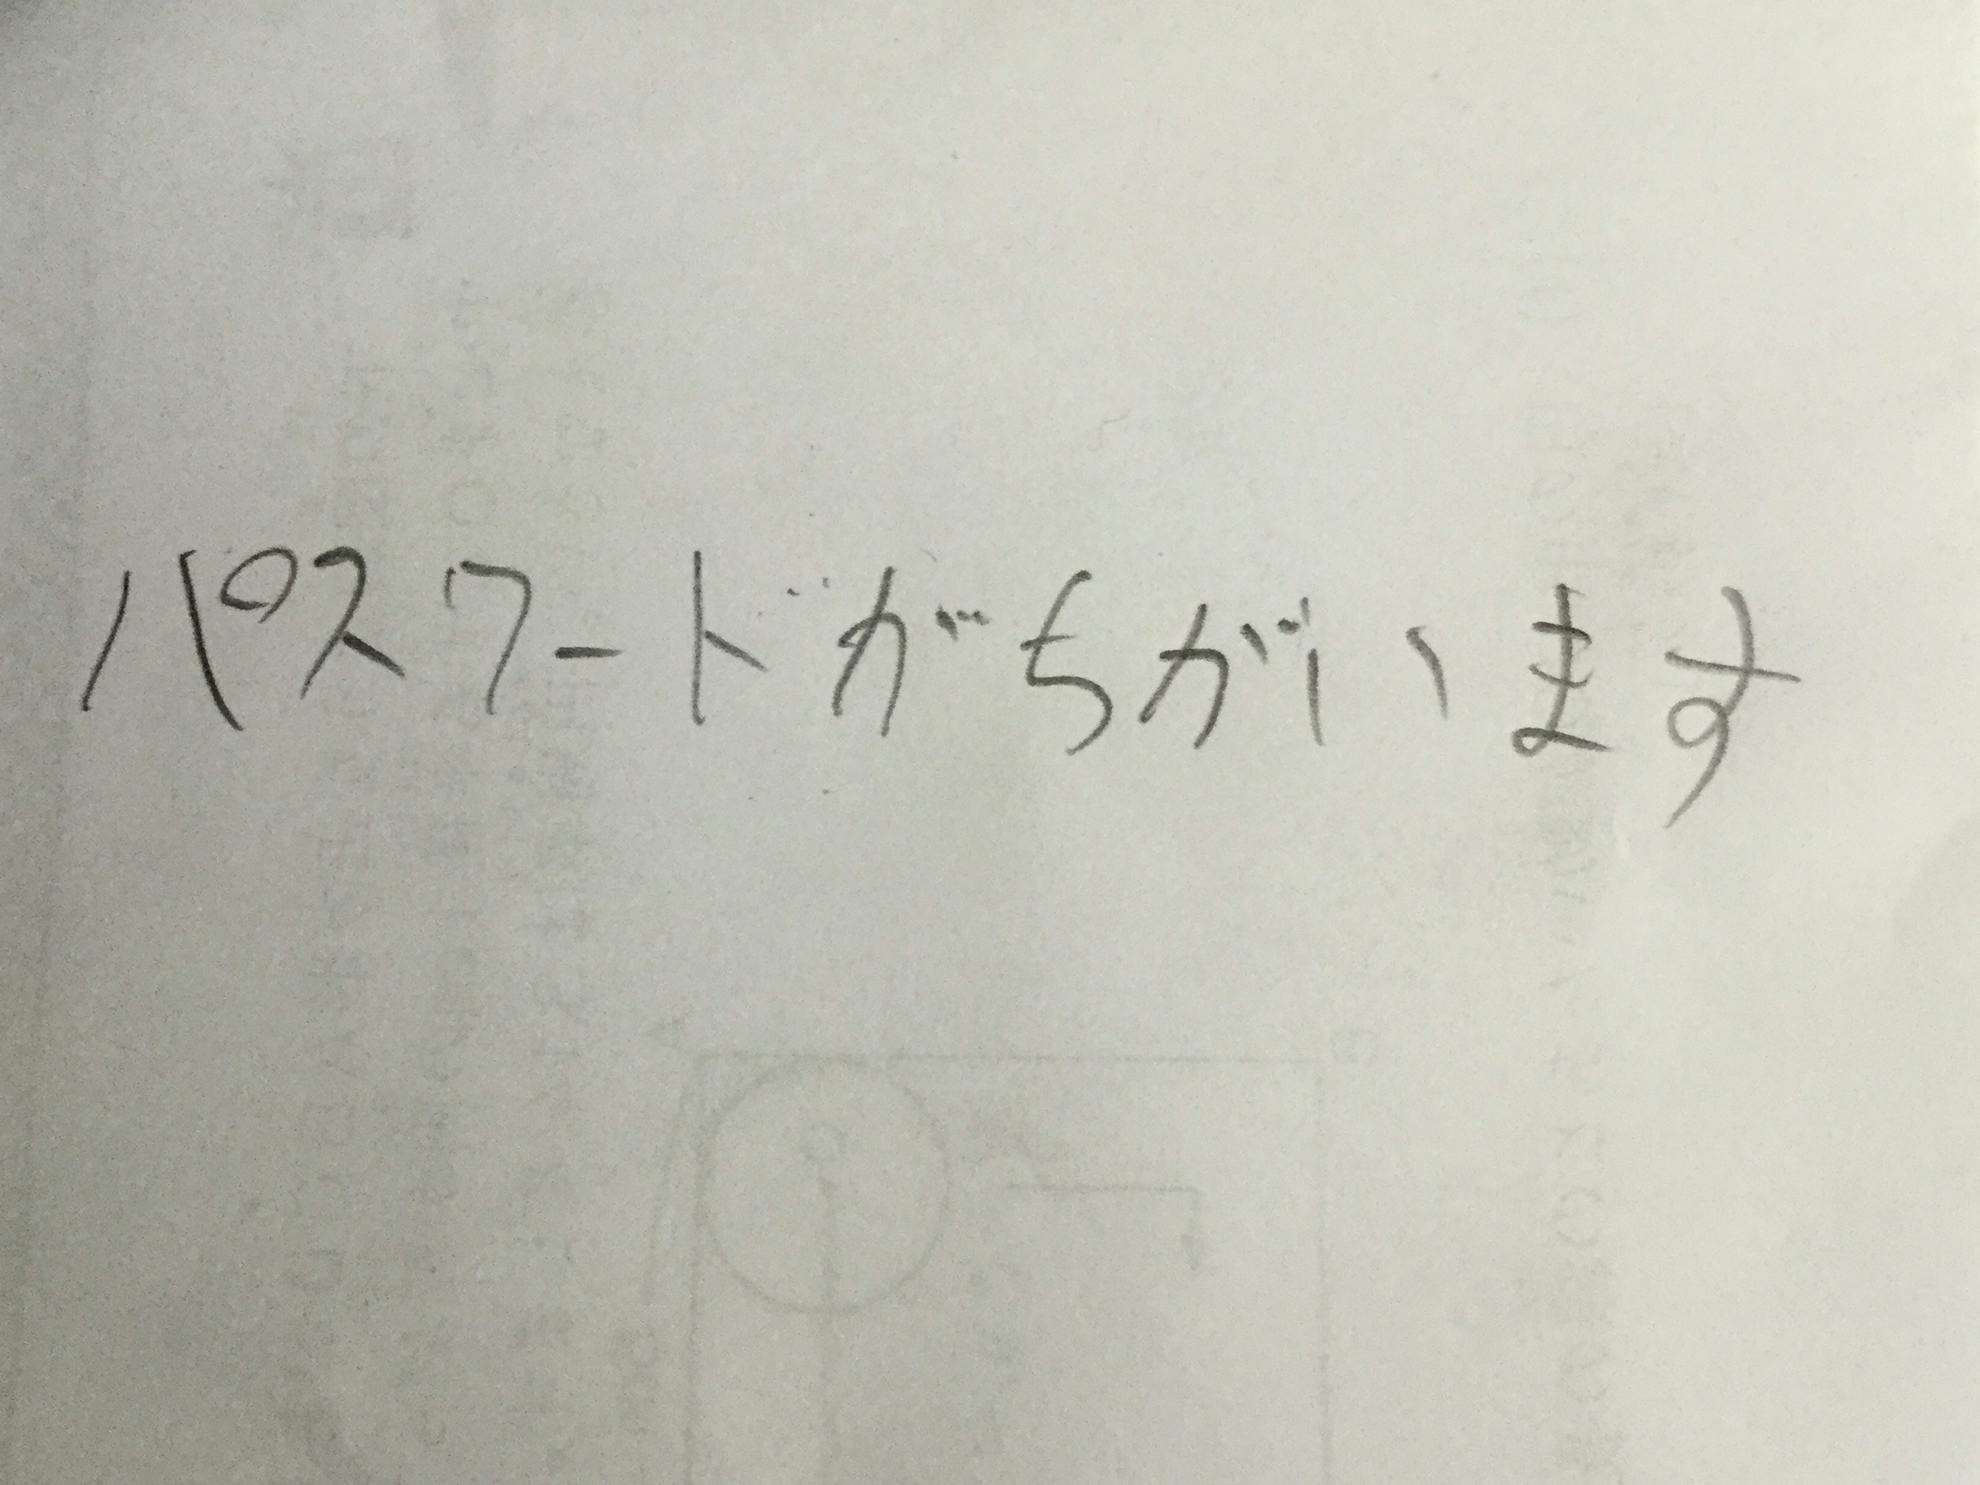 パスワードがちがいます